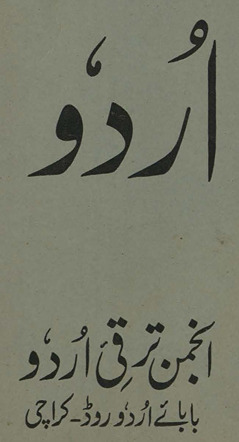 اُردو
انجمن ترقیٔ اُردو
بابائے اُردو روڈ۔ کراچی